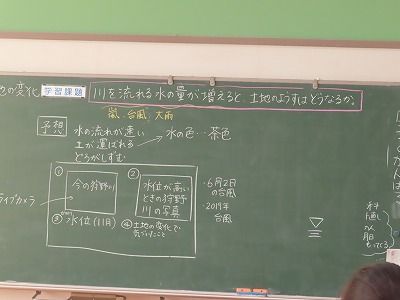 地の変化 学習課題 川を流れる水の量が増えると、土地のようすはどうなるか。
嵐、台風、大雨
予想 水の流れが速い
土が運ばれる
どろがしずむ
水の色‥茶色
①
今の狩野川
②
水位が高い
ときの狩野
川の写真
ライブカメラ
③ 水位(11月)
④土地の変化で
気づいたこと
・6月2日
の台風
・2019年
台風